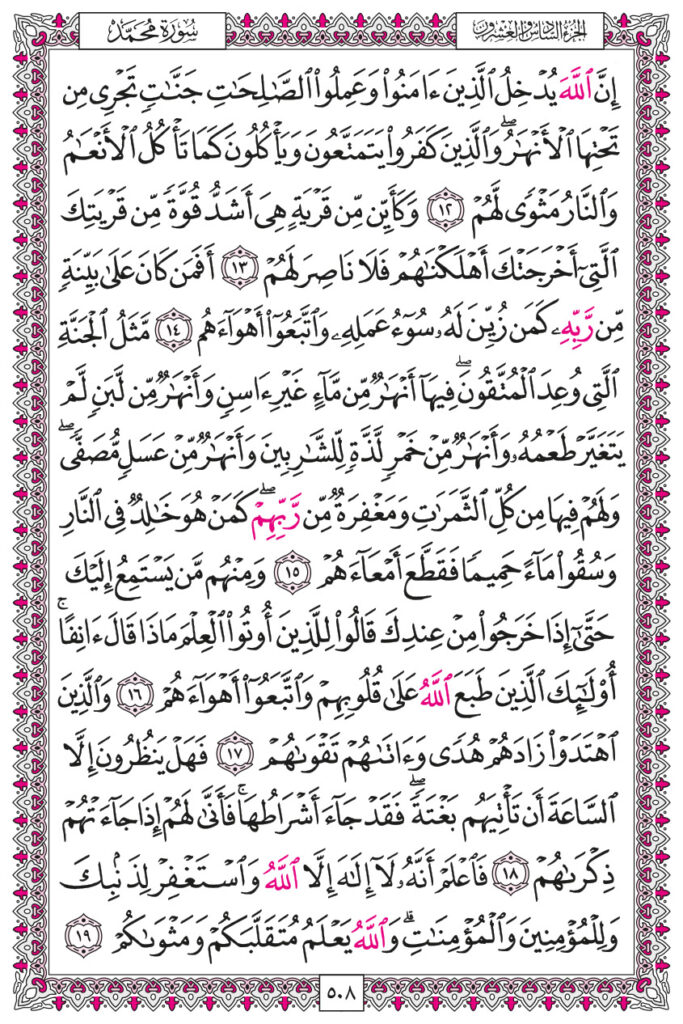 سُورَةُ مُحَمَّد
الجُزءُ السَّادِسُ وَالعِشرُونَ
إِنَّ ٱللَّهَ يُدۡخِلُ ٱلَّذِينَ ءَامَنُواْ وَعَمِلُواْ ٱلصَّٰلِحَٰتِ جَنَّٰتٖ تَجۡرِي مِن
تَحۡتِهَا ٱلۡأَنۡهَٰرُۖ وَٱلَّذِينَ كَفَرُواْ يَتَمَتَّعُونَ وَيَأۡكُلُونَ كَمَا تَأۡكُلُ ٱلۡأَنۡعَٰمُ
وَٱلنَّارُ مَثۡوٗى لَّهُمۡ ١٢ وَكَأَيِّن مِّن قَرۡيَةٍ هِيَ أَشَدُّ قُوَّةٗ مِّن قَرۡيَتِكَ
ٱلَّتِيٓ أَخۡرَجَتۡكَ أَهۡلَكۡنَٰهُمۡ فَلَا نَاصِرَ لَهُمۡ ١٣ أَفَمَن كَانَ عَلَىٰ بَيِّنَةٖ
مِّن رَّبِّهِۦ كَمَن زُيِّنَ لَهُۥ سُوٓءُ عَمَلِهِۦ وَٱتَّبَعُوٓاْ أَهۡوَآءَهُم ١٤ مَّثَلُ ٱلۡجَنَّةِ
ٱلَّتِي وُعِدَ ٱلۡمُتَّقُونَۖ فِيهَآ أَنۡهَٰرٞ مِّن مَّآءٍ غَيۡرِ ءَاسِنٖ وَأَنۡهَٰرٞ مِّن لَّبَنٖ لَّمۡ
يَتَغَيَّرۡ طَعۡمُهُۥ وَأَنۡهَٰرٞ مِّنۡ خَمۡرٖ لَّذَّةٖ لِّلشَّٰرِبِينَ وَأَنۡهَٰرٞ مِّنۡ عَسَلٖ مُّصَفّٗىۖ
وَلَهُمۡ فِيهَا مِن كُلِّ ٱلثَّمَرَٰتِ وَمَغۡفِرَةٞ مِّن رَّبِّهِمۡۖ كَمَنۡ هُوَ خَٰلِدٞ فِي ٱلنَّارِ
وَسُقُواْ مَآءً حَمِيمٗا فَقَطَّعَ أَمۡعَآءَهُمۡ ١٥ وَمِنۡهُم مَّن يَسۡتَمِعُ إِلَيۡكَ
حَتَّىٰٓ إِذَا خَرَجُواْ مِنۡ عِندِكَ قَالُواْ لِلَّذِينَ أُوتُواْ ٱلۡعِلۡمَ مَاذَا قَالَ ءَانِفًاۚ
أُوْلَٰٓئِكَ ٱلَّذِينَ طَبَعَ ٱللَّهُ عَلَىٰ قُلُوبِهِمۡ وَٱتَّبَعُوٓاْ أَهۡوَآءَهُمۡ ١٦ وَٱلَّذِينَ
ٱهۡتَدَوۡاْ زَادَهُمۡ هُدٗى وَءَاتَىٰهُمۡ تَقۡوَىٰهُمۡ ١٧ فَهَلۡ يَنظُرُونَ إِلَّا
ٱلسَّاعَةَ أَن تَأۡتِيَهُم بَغۡتَةٗۖ فَقَدۡ جَآءَ أَشۡرَاطُهَاۚ فَأَنَّىٰ لَهُمۡ إِذَا جَآءَتۡهُمۡ
ذِكۡرَىٰهُمۡ ١٨ فَٱعۡلَمۡ أَنَّهُۥ لَآ إِلَٰهَ إِلَّا ٱللَّهُ وَٱسۡتَغۡفِرۡ لِذَنۢبِكَ
وَلِلۡمُؤۡمِنِينَ وَٱلۡمُؤۡمِنَٰتِۗ وَٱللَّهُ يَعۡلَمُ مُتَقَلَّبَكُمۡ وَمَثۡوَىٰكُمۡ ١٩
٥٠٨